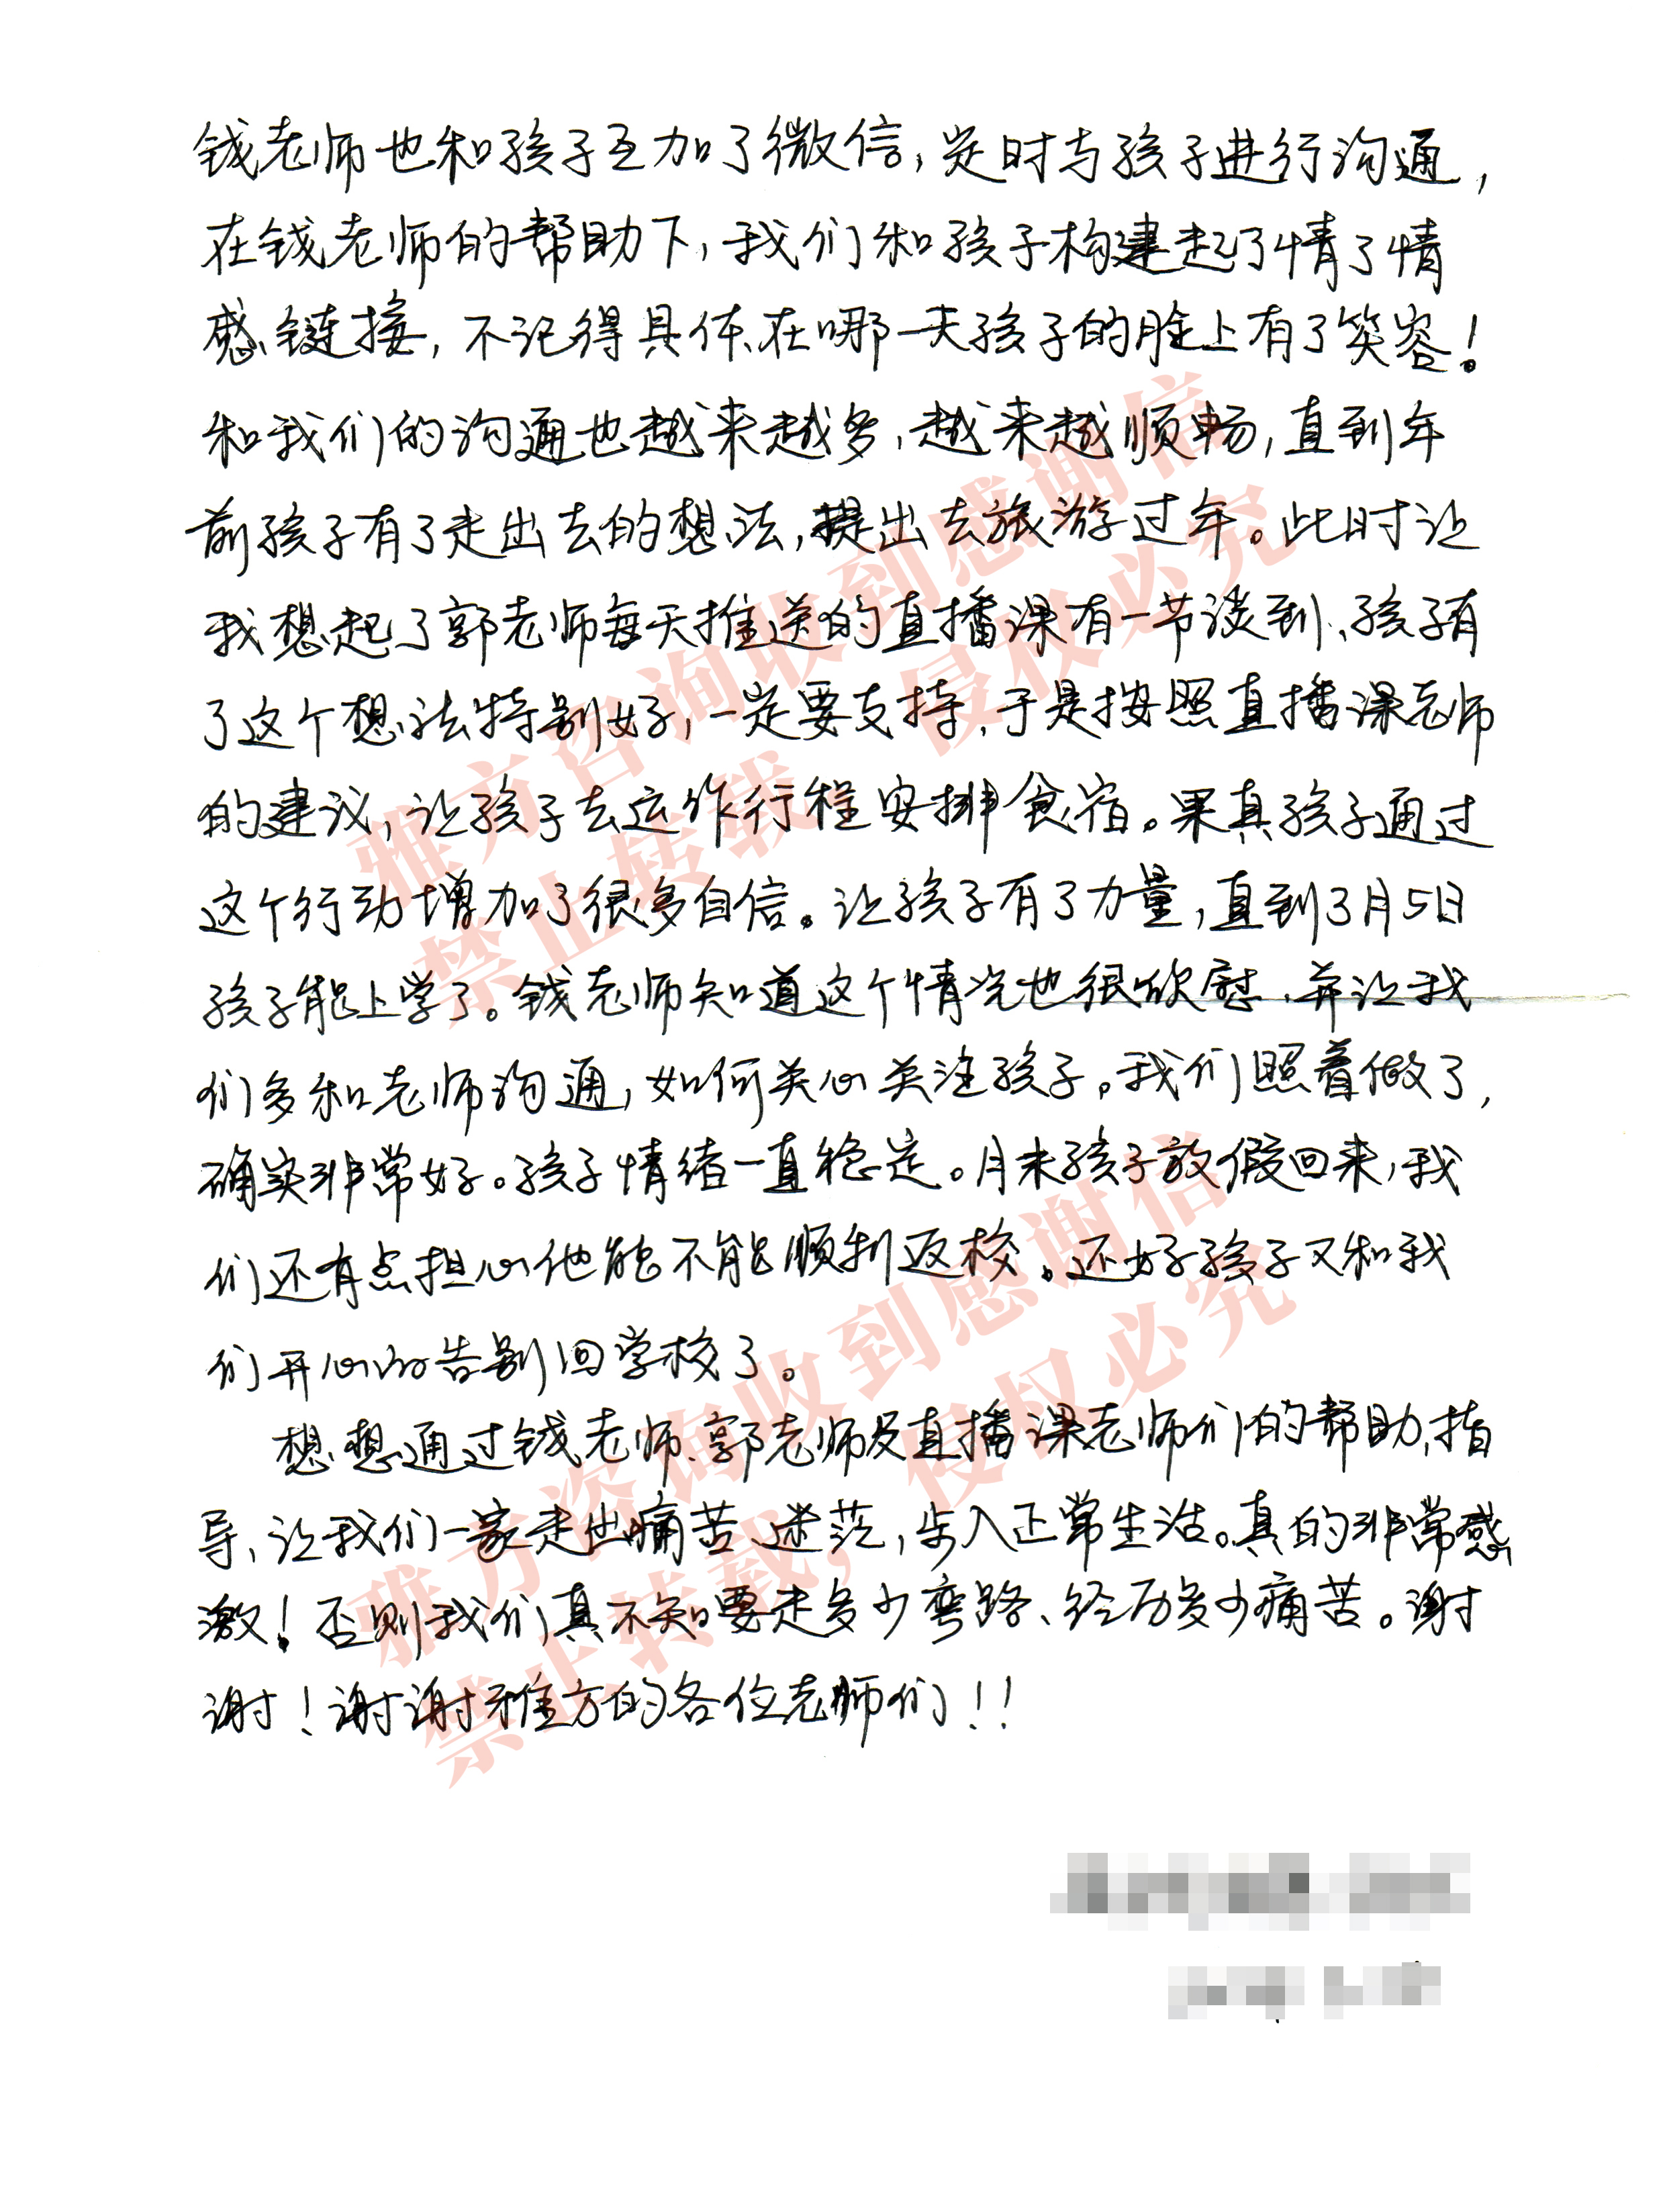 钱老师也和孩子互加了微信，定时与孩子进行沟通，
在钱老师的帮助下，我们和孩子构建起了情了情
感链接，不记得具体在哪一天孩子的脸上有了笑容！
和我们的沟通也越来越多，越来越顺畅，直到年
前孩子有了走出去的想法，提出去旅游过年。此时让
我想起了郭老师每天推送的直播课有一节谈到、孩子有
了这个想法特别好，一定要支持，于是按照直播课老师
的建议，让孩子去运作行程安排食宿。果真孩子通过
这个行动增加了很多自信。让孩子有了力量，直到3月5日
孩子能上学了。钱老师知道这个情况也很欣慰、并让我
们多和老师沟通，如何关心关注孩子。我们照着做了，
确实非常好。孩子情绪一直稳定。月末孩子放假回来，我
们还有点担心他能不能顺利返校。还好孩子又和我
们开心的告别回学校了。
想想通过钱老师、郭老师及直播课老师们的帮助、指
导、让我们一家走出痛苦、迷茫，步入正常生活。真的非常感
激！否则我们真不知要走多少弯路、经历多少痛苦。谢
谢！谢谢雅方的各位老师们！！
雅方咨询收到感谢信
禁止转载，侵权必究
雅方咨询收到感谢信
禁止转载，侵权必究